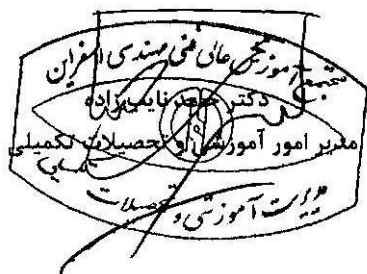 مجتمع آموزش عالی فنی مهندسی اسفراین
دکتر نایب زاده
مدیر امور آموزشی و تحصیلات تکمیلی
مدیریت آموزشی و تحصیلات
تکمیلی